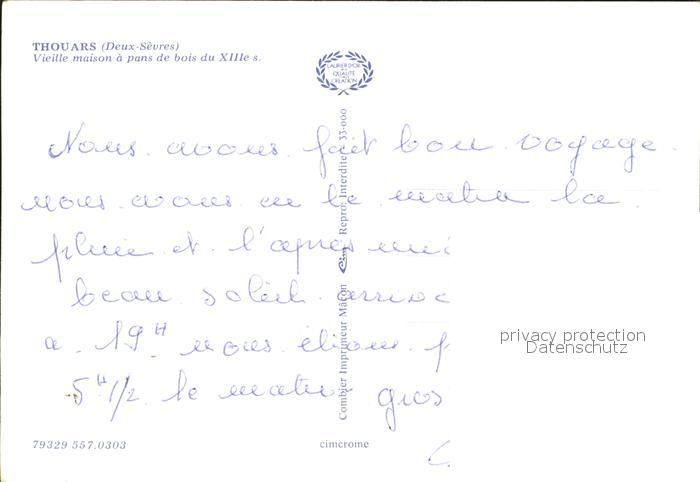 THOUARS (Deux-Sèvres)
Vieille maison à pans de bois du XIIIe s.
LAURIER D'OR
DE LA
QUALITÉ
CRÉATION
Nous avons fait bon voyage.
nous avons eu le matin la
pluie et l'après mi
beau soleil arrivé
a 19H nous étions
5H 1/2 le matin gros
Combier Imprimeur Mâcon Cim Repro. Interdite 33-000
privacy protection
Datenschutz
79329 557.0303
cimcrome